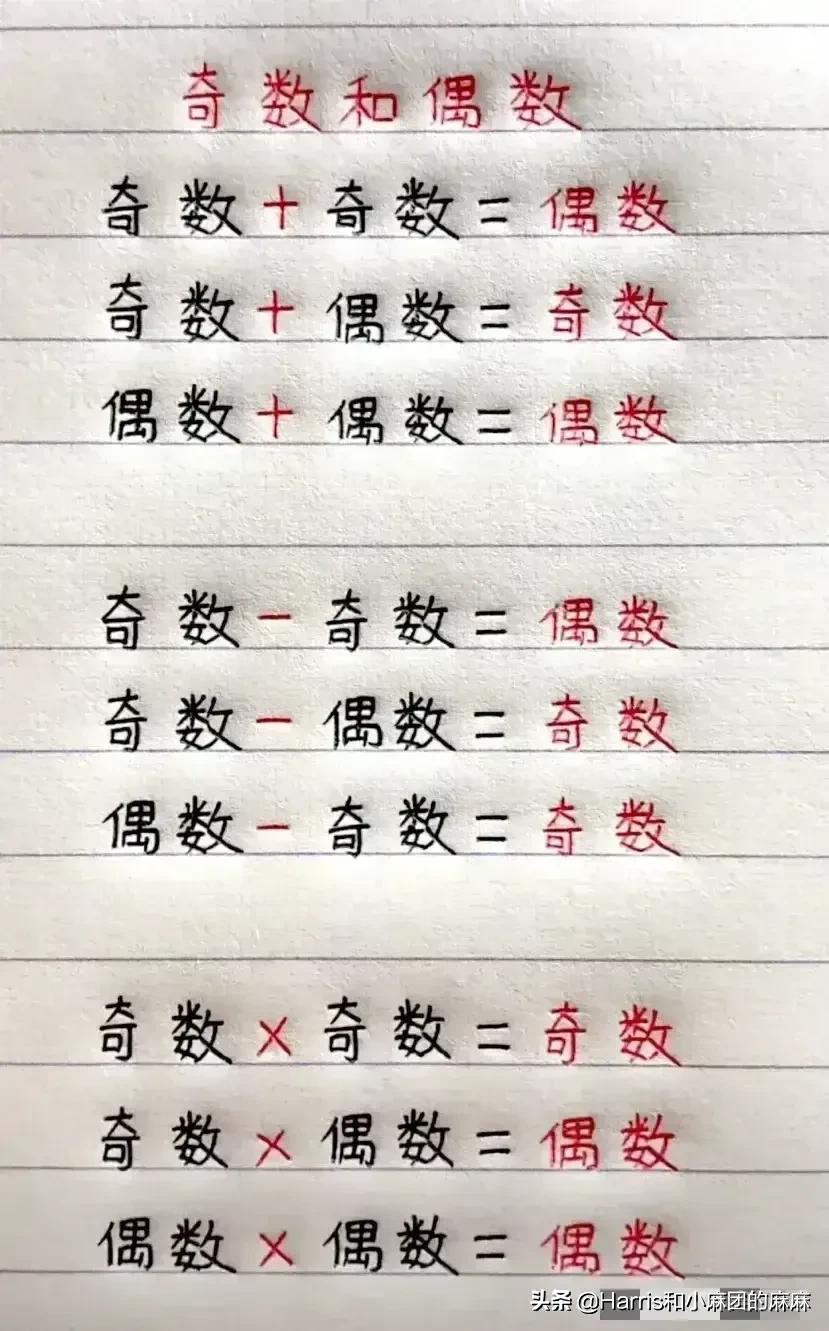 奇数和偶数
奇数+奇数=偶数
奇数+偶数=奇数
偶数+偶数=偶数
奇数-奇数=偶数
奇数-偶数=奇数
偶数-奇数=奇数
奇数×奇数=奇数
奇数×偶数=偶数
偶数×偶数=偶数
头条 @Harris和小麻团的麻麻